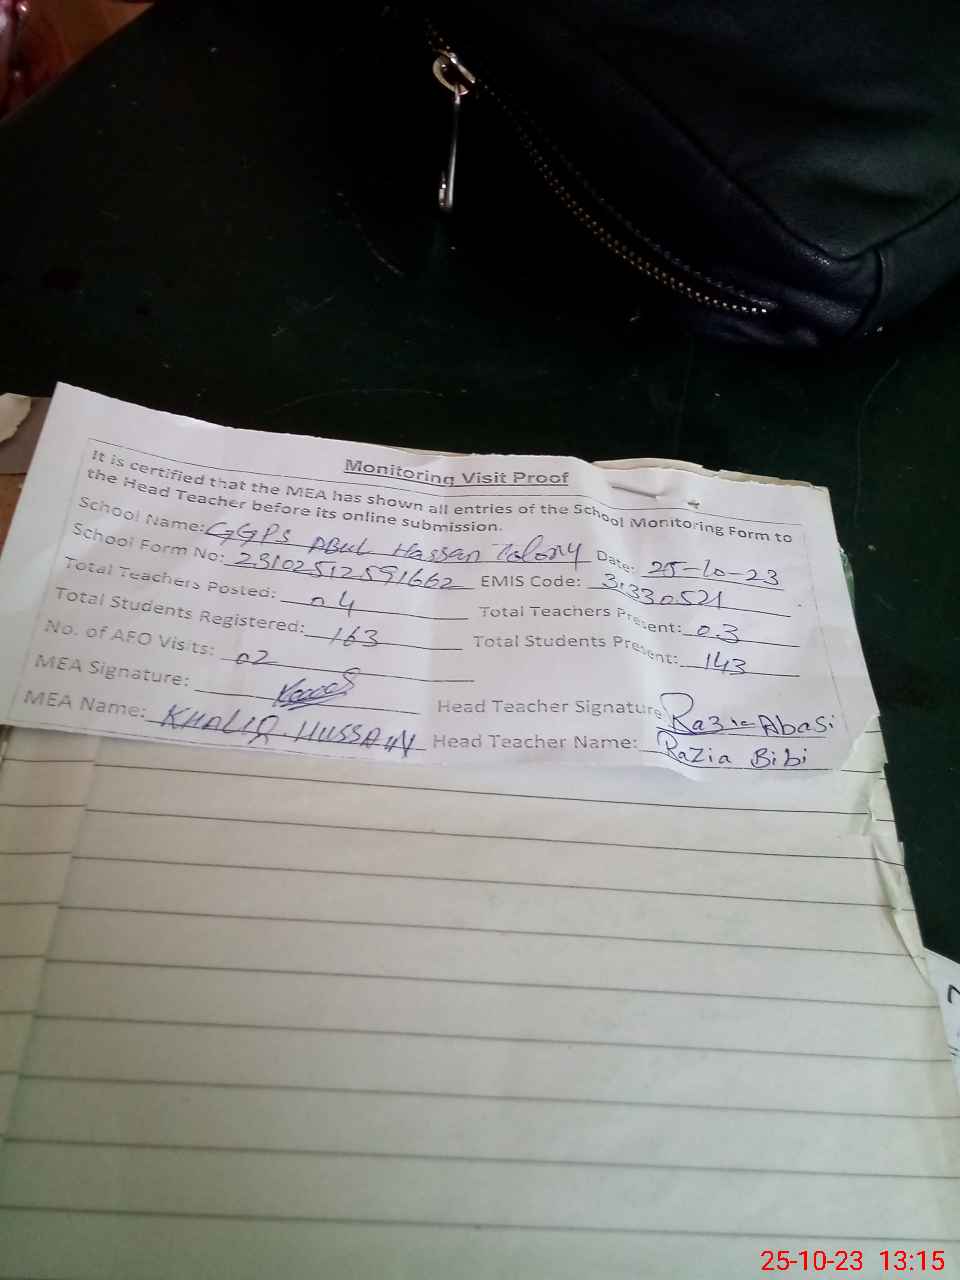 Monitoring Visit Proof
It is certified that the MEA has shown all entries of the School Monitoring Form to
the Head Teacher before its online submission.
School Name: GGPS Abul Hassan Colony Date: 25-10-23
School Form No: 23102512591662 EMIS Code: 31330521
Total Teachers Posted: 04 Total Teachers Present: 03
Total Students Registered: 163 Total Students Present: 143
No. of AEO Visits: 02
MEA Signature: Head Teacher Signature Razia Abasi
MEA Name: KHALIQ HUSSAIN Head Teacher Name: Razia Bibi
25-10-23 13:15